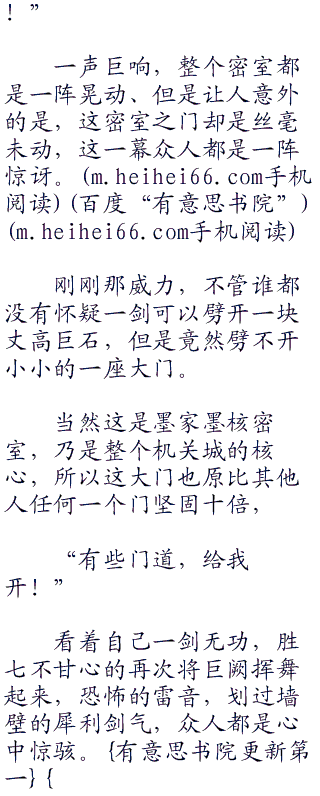 ！”
一声巨响，整个密室都
是一阵晃动、但是让人意外
的是，这密室之门却是丝毫
未动，这一幕众人都是一阵
惊讶。(m.heihei66.com手机
阅读)(百度“有意思书院”)
(m.heihei66.com手机阅读)
刚刚那威力，不管谁都
没有怀疑一剑可以劈开一块
丈高巨石，但是竟然劈不开
小小的一座大门。
当然这是墨家墨核密
室，乃是整个机关城的核
心，所以这大门也原比其他
人任何一个门坚固十倍，
“有些门道，给我
开！”
看着自己一剑无功，胜
七不甘心的再次将巨阙挥舞
起来，恐怖的雷音，划过墙
壁的犀利剑气，众人都是心
中惊骇。{有意思书院更新第
一}{